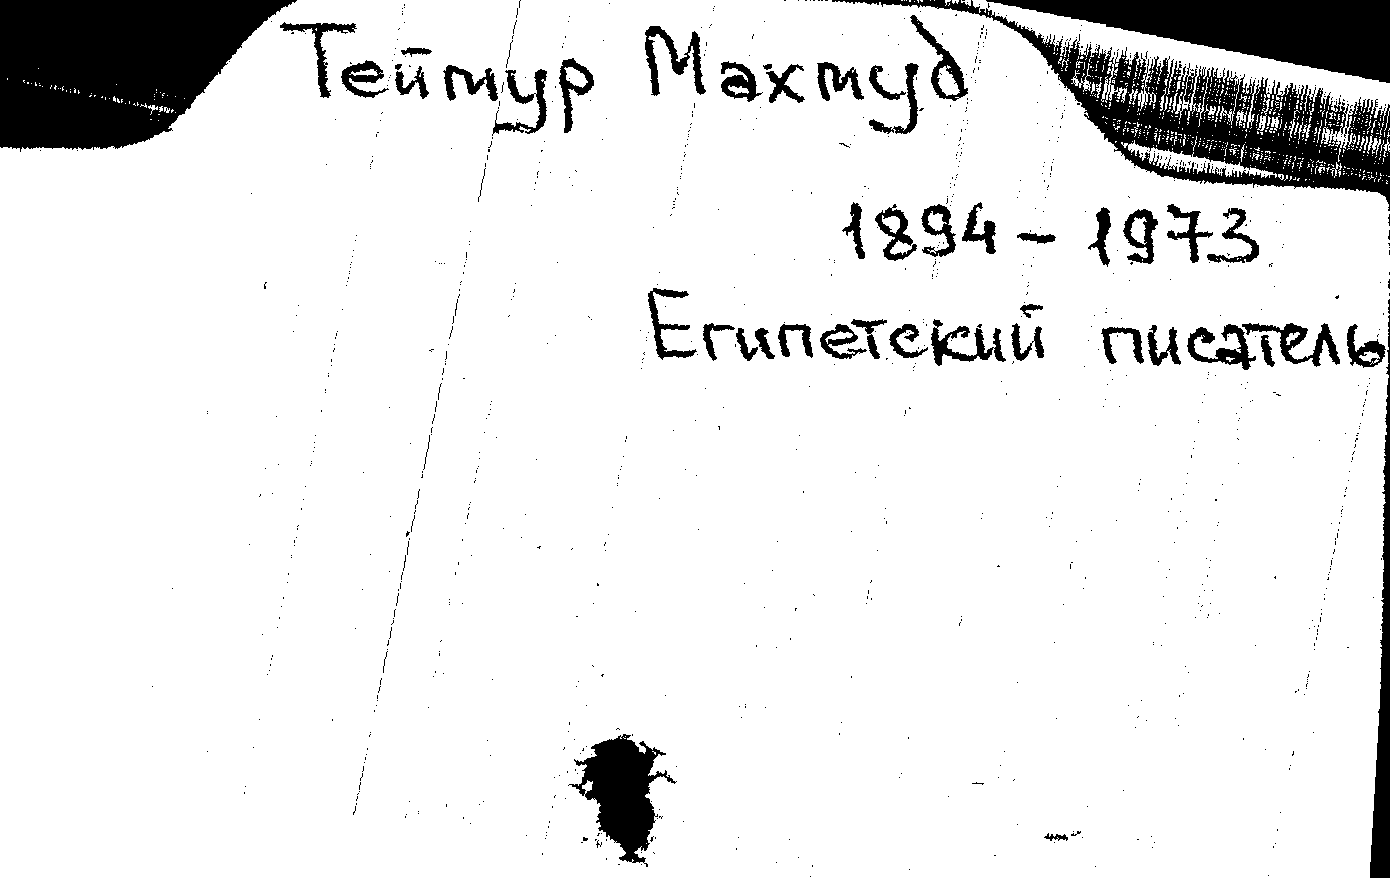 Теймур Махмуд
1894 - 1973
Египетский писатель